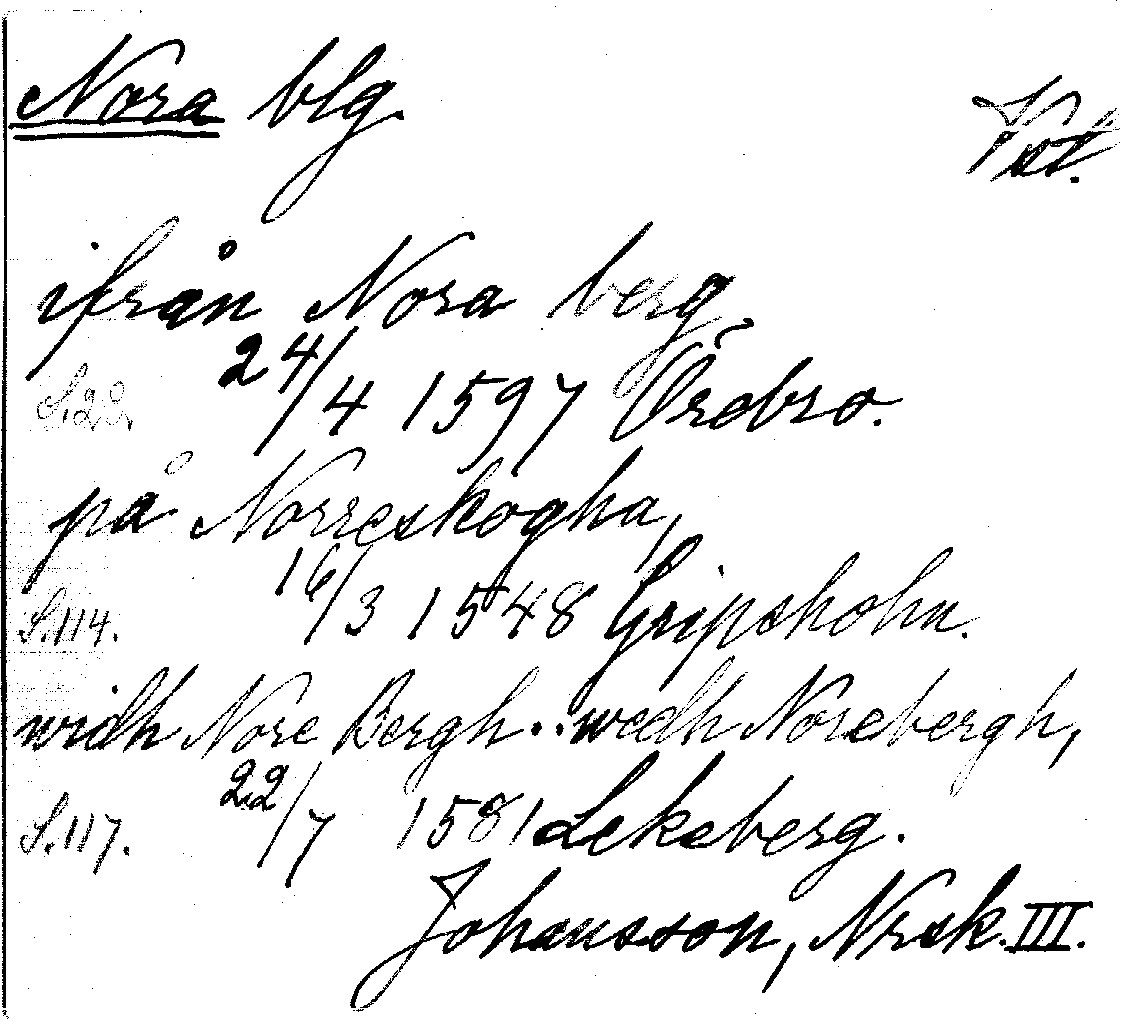 Nora blg.
Vst.
ifrån Nora berg,
S.22. 24/4 1597 Örebro.
på Norreskogha,
S.114. 16/3 1548 Gripsholm.
widh Nore Bergh.. wedh Norebergh,
S.117. 22/7 1581 Lekeberg.
Johansson, Nrsk. III.